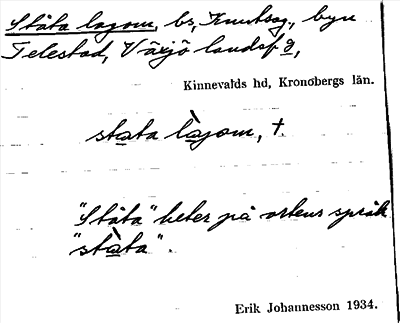 Ståta lagom, bs, Knutsag., byn
Telestad, Växjö landsf 9,
Kinnevalds hd, Kronobergs län.
stata làgom, †.
"Ståta" heter på ortens språk
"stàta".
Erik Johannesson 1934.